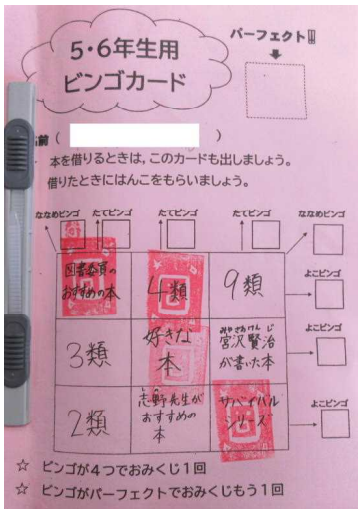 5・6年生用
ビンゴカード
パーフェクト!!
名前(　　　)
本を借りるときは,このカードも出しましょう。
借りたときにはんこをもらいましょう。
ななめビンゴ たてビンゴ たてビンゴ たてビンゴ ななめビンゴ
図書委員の
おすすめの本
4類
9類
よこビンゴ
3類
好きな
本
みやざわけんじ
宮沢賢治
が書いた本
よこビンゴ
2類
志野先生が
おすすめの
本
サバイバル
シリーズ
よこビンゴ
☆ ビンゴが4つでおみくじ1回
☆ ビンゴがパーフェクトでおみくじもう1回